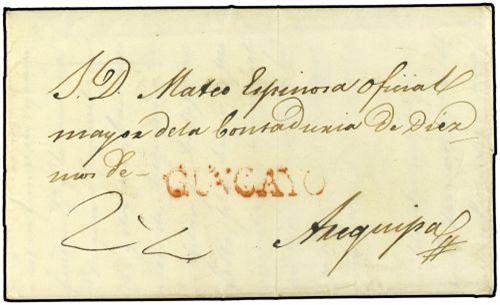 S. D. Mateo Espinosa Oficial
mayor de la Contaduria de Diez-
mos de -
GUNCAYO
Arequipa